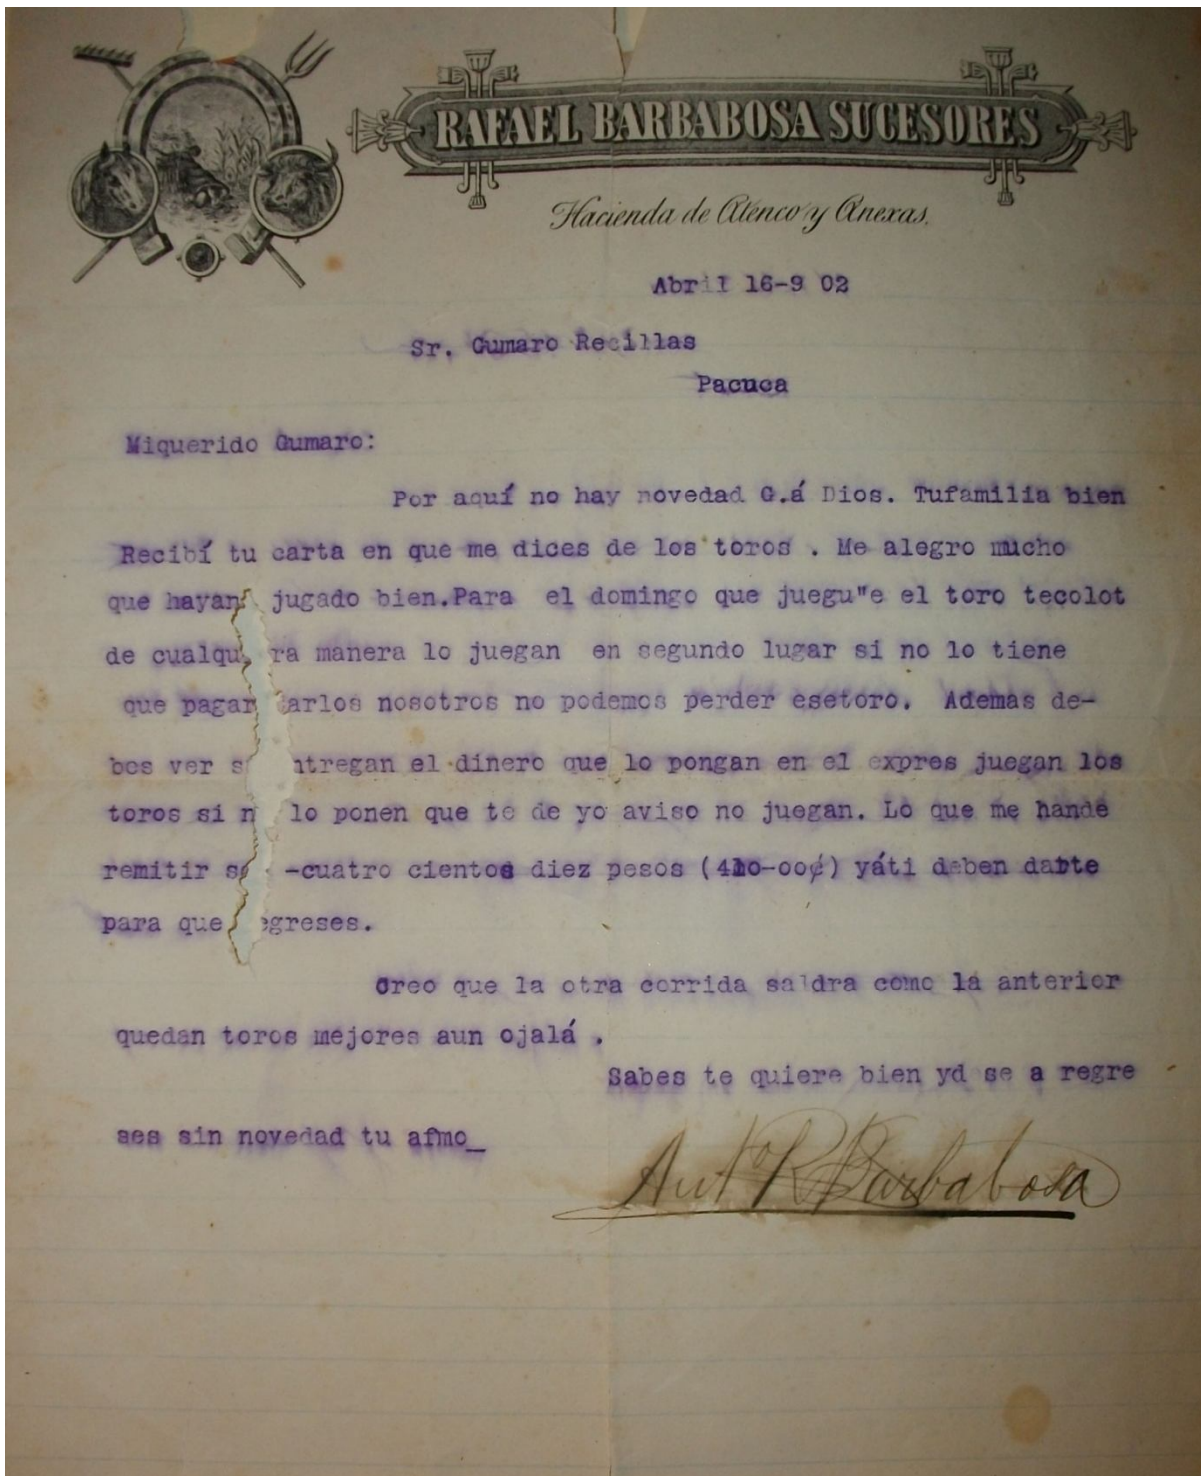 RAFAEL BARBABOSA SUCESORES
Hacienda de Atenco y Anexas.
Abril 16-9 02
Sr. Gumaro Recillas
Pacuca
Miquerido Gumaro:
Por aquí no hay novedad G.á Dios. Tufamilia bien
Recibí tu carta en que me dices de los toros . Me alegro mucho
que hayan jugado bien.Para el domingo que juegu"e el toro tecolot
de cualqu ra manera lo juegan en segundo lugar si no lo tiene
que pagar arlos nosotros no podemos perder esetoro. Ademas de-
bes ver s ntregan el dinero que lo pongan en el expres juegan los
toros si n lo ponen que te de yo aviso no juegan. Lo que me hande
remitir s -cuatro cientos diez pesos (410-00¢) yáti deben darte
para que egreses.
Creo que la otra corrida saldra como la anterior
quedan toros mejores aun ojalá .
Sabes te quiere bien yd se a regre
ses sin novedad tu afmo_
Anto R Barbabosa